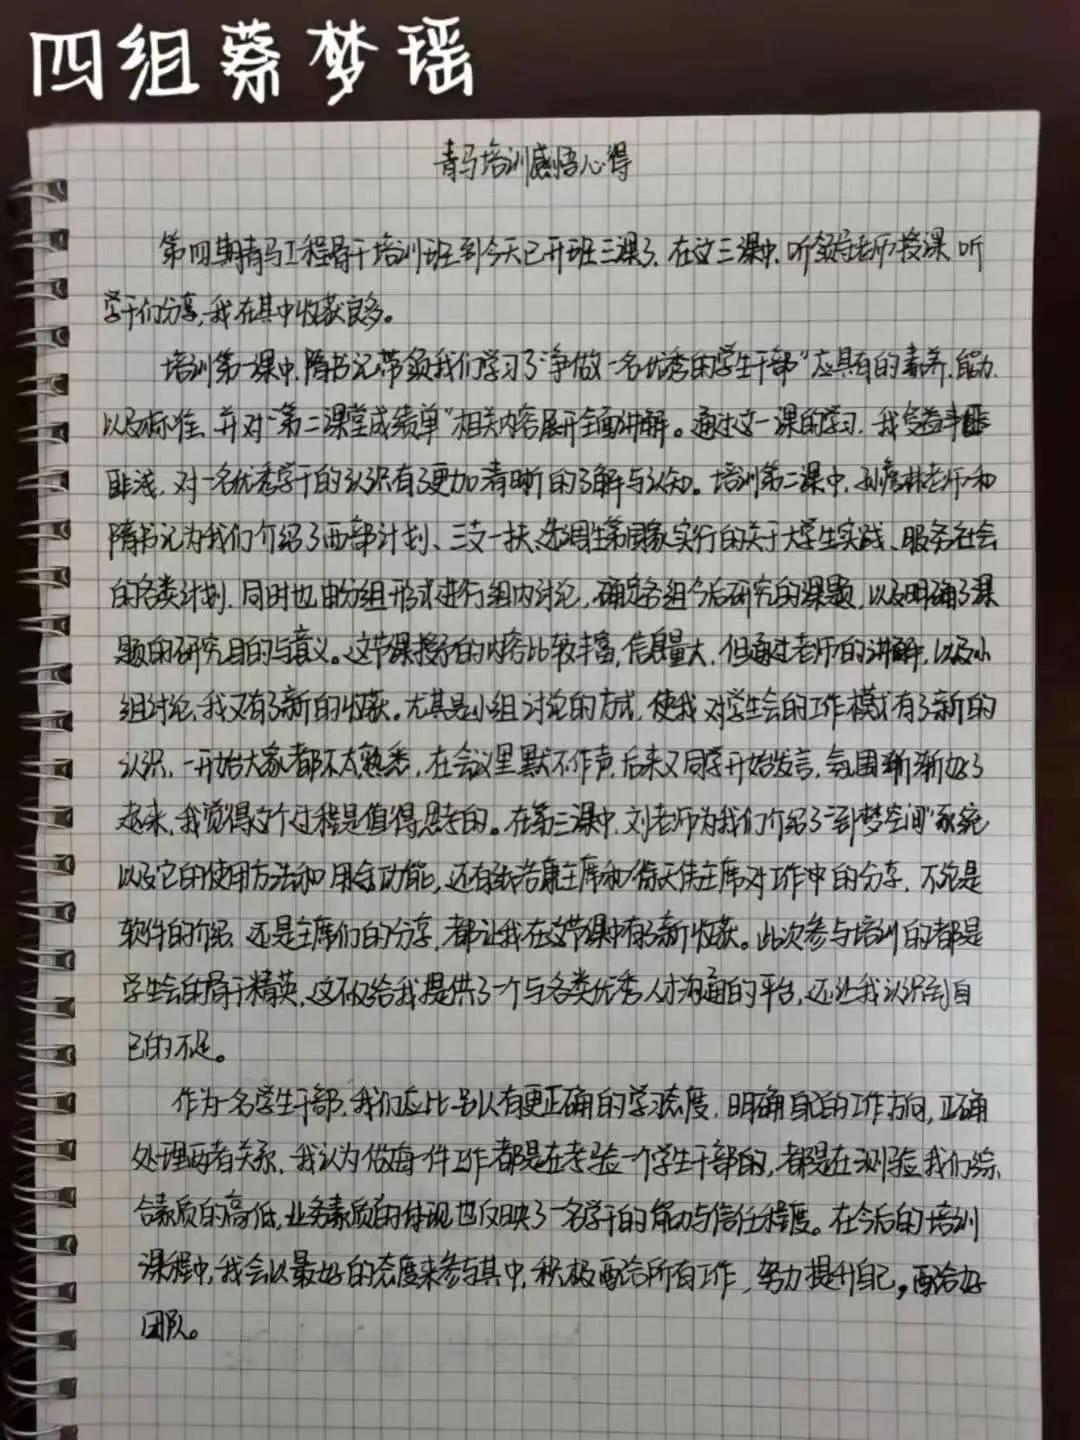 四组蔡梦瑶
青马培训感悟心得
第四期青马工程骨干培训班到今天已开班三课了，在这三课中，听领导老师授课，听
学干们分享，我在其中收获良多。
培训第一课中，隋书记带领我们学习了“争做一名优秀的学生干部”应具有的素养、能力、
以及标准，并对“第二课堂成绩单”相关内容展开全面讲解。通过这一课的学习，我受益
匪浅，对一名优秀学干的认识有了更加清晰的了解与认知。培训第二课中，孙 林老师和
隋书记为我们介绍了西部计划、三支一扶、选调生等国家实行的关于大学生实践、服务社会
的各类计划，同时也由分组形式进行组内讨论，确定各组今后研究的课题，以及明确了课
题的研究目的与意义。这节课授予的内容比较丰富，信息量大，但通过老师的讲解，以及小
组讨论，我又有了新的收获。尤其是小组讨论的方式，使我对学生会的工作模式有了新的
认识，一开始大家都不太熟悉，在会议里默不作声，后来又同学开始发言，氛围渐渐好了
起来，我觉得这个过程是值得思考的。在第三课中，刘老师为我们介绍了“到梦空间”系统
以及它的使用方法和用途功能，还有 浩康主席和徐天伟主席对工作中的分享，不论是
软件的介绍，还是主席们的分享，都让我在这节课中有了新收获。此次参与培训的都是
学生会的骨干精英，这不仅给我提供了一个与各类优秀人才沟通的平台，还让我认识到自
己的不足。
作为一名学生干部，我们应比别人有更正确的学习态度，明确自己的工作方向，正确
处理两者关系，我认为做每一件工作都是在考验一个学生干部的，都是在测验我们综
合素质的高低，业务素质的体现也反映了一名学干的能力与信任程度。在今后的培训
课程中，我会以最好的态度来参与其中，积极配合所有工作，努力提升自己，配合好
团队。